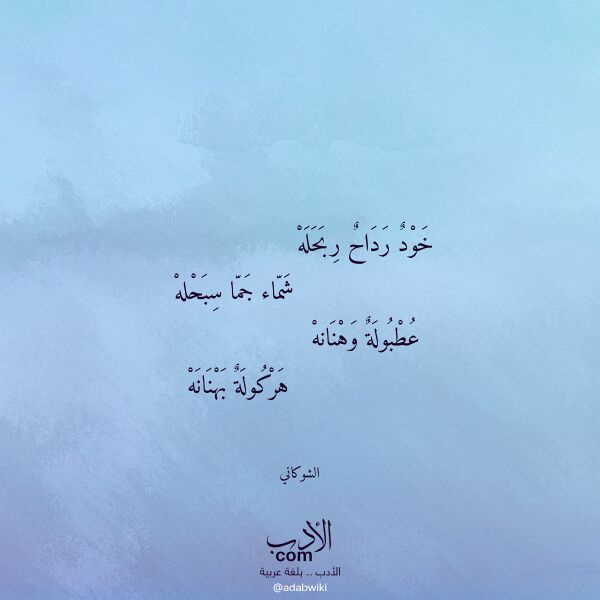 خَوْدٌ رَدَاحٌ رِبَحَلَهْ
شَمّاء جَمّا سِبَحْلهْ
عُطْبُولَةٌ وَهْنَانهْ
هَرْكُولَةٌ بَهْنَانَهْ
الشوكاني
الأدب
com
الأدب .. بلغة عربية
@adabwiki